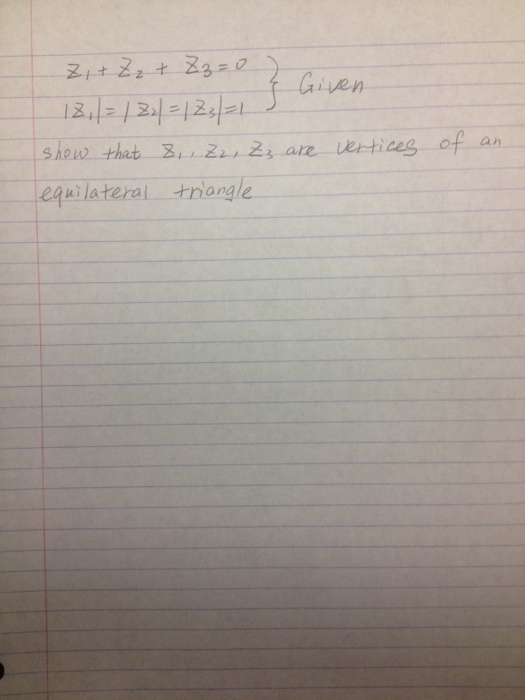 Z₁ + Z₂ + Z₃ = 0 } Given
|Z₁| = |Z₂| = |Z₃| = 1
show that Z₁, Z₂, Z₃ are vertices of an
equilateral triangle